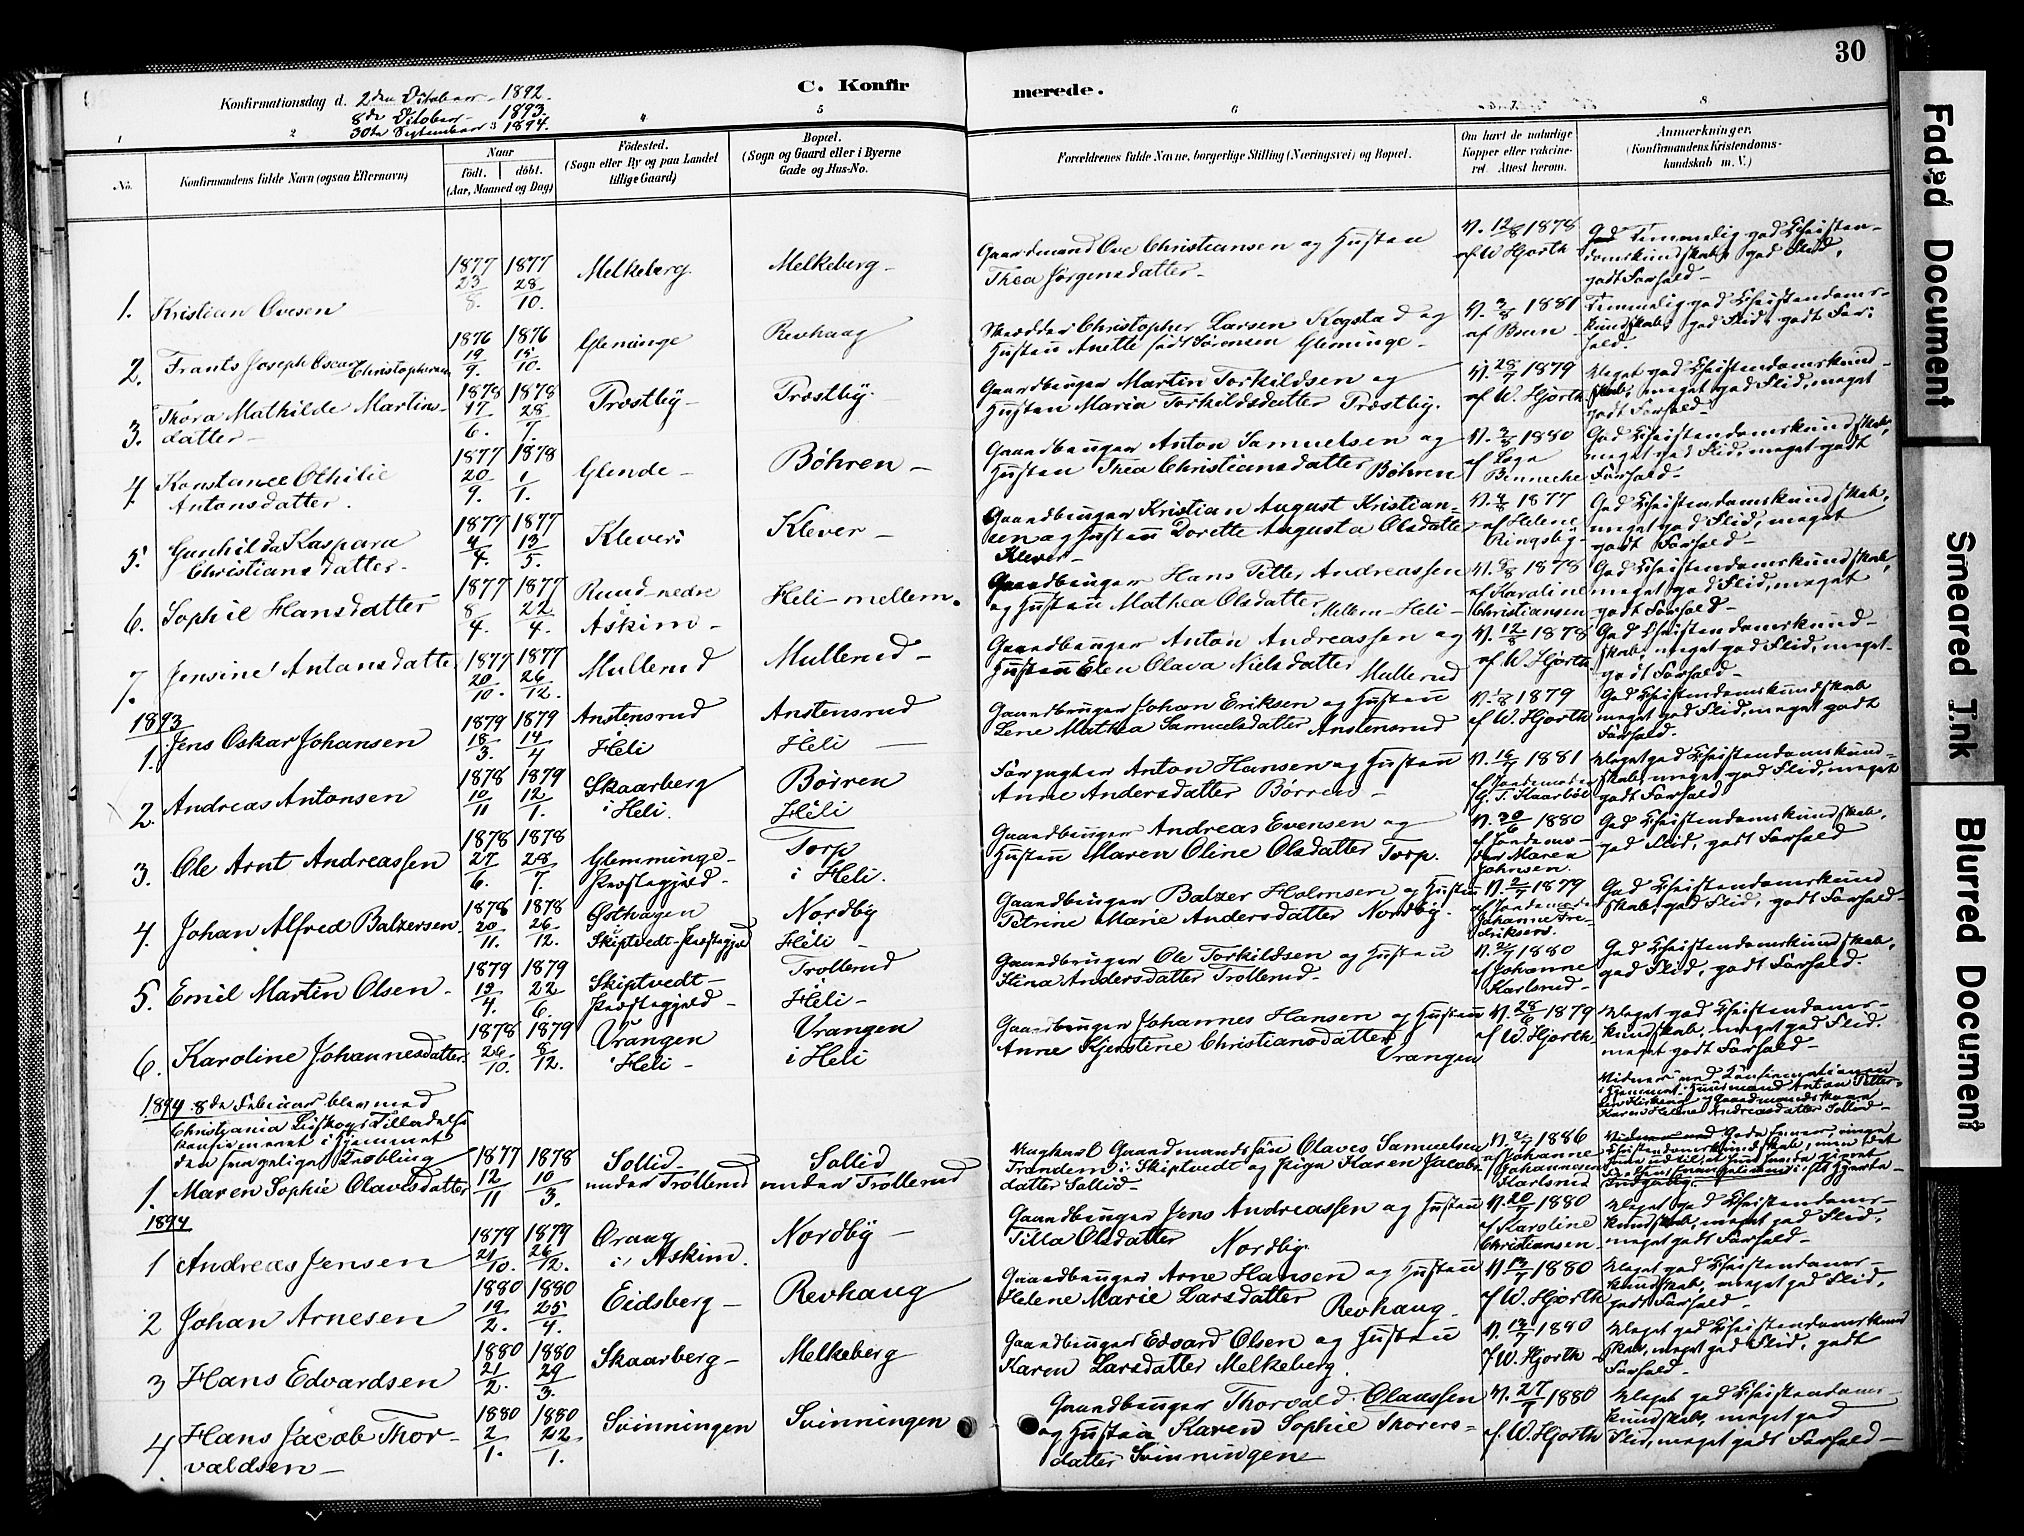 30
C. Konfirmerede.
Konfirmationsdag d. 2den Oktober 1892.
8de Oktober 1893.
30te September 1894.
1 2 4 5 6 8
No.
Konfirmandens fulde Navn (ogsaa Efternavn)
Naar
født. døbt.
(Aar, Maaned og Dag)
Fødested.
(Sogn eller By og paa Landet
tillige Gaard)
Bopæl.
(Sogn og Gaard eller i Byerne
Gade og Hus-No.
Forældrenes fulde Navne, borgerlige Stilling (Næringsvei) og Bopæl.
Om havt de naturlige
Kopper eller vakcineret.
Attest herom.
Anmærkninger.
(Konfirmandens Kristendomskundskab
m. V.)
1. Kristian Ovesen 1877 23/8. 1877 28/10. Melkeberg. Melkeberg-
Gaardmand Ove Christiansen og Hustru
Thea Jørgensdatter-
V. 12/8 1878
af W Hjorth
Temmelig god Christen-
domskundskab, god Flid,
godt Forhold-
2. Frants Joseph Oscar Christophersen 1876 19/9. 1876 15/10. Gleninge Revhaug
Skrædder Christopher Larsen Kogstad og
Hustru Anette født Sørensen Gleminge-
V. 3/8 1881
af Brun
Temmelig god Christendoms-
kundskab, god Flid, godt For-
hold.
3. Thora Mathilde Martins-
datter- 1878 17/6. 1878 28/7. Trøstby- Trøstby-
Gaardbruger Martin Torkildsen og
Hustru Maria Torkildsdatter Trøstby.
V. 28/7 1879
af W. Hjorth
Meget god Christendomskund-
skab, meget god Flid, meget
godt Forhold-
4. Konstance Othilie
Antonsdatter. 1877 20/9. 1878 1/1. Glende- Böhren-
Gaardbruger Anton Samuelsen og
Hustru Thea Christiansdatter Böhren
V. 3/8 1880
af
Benneche
God Christendomskundskab,
meget god Flid, meget godt
Forhold-
5. Gunhilda Kaspara
Christiansdatter- 1877 4/4. 1877 13/5. Klever Klever-
Gaardbruger Kristian August Kristian-
sen og Hustru Dorette Augusta Olsdatter
Klever-
1877
af Helene
Ringsby-
God Christendomskundskab,
meget god Flid, meget
godt Forhold-
6. Sophie Hansdatter 1877 8/4. 1877 22/4. Ruud-nedre
Askim- Heli-mellem.
Gaardbruger Hans Petter Andreassen
og Hustru Mathea Olsdatter Mellem-Heli-
1878
af Karoline
Christiansen
God Christendomskundskab,
meget god Flid, meget
godt Forhold-
7. Jensine Antonsdatter 1877 20/10. 1877 26/12. Mullerud Mullerud-
Gaardbruger Anton Andreassen og
Hustru Elen Olava Nielsdatter Mullerud
V. 12/8 1878
af W. Hjorth
God Christendomskund-
skab, meget god Flid, meget
godt Forhold-
1893
1. Jens Oskar Johansen 1879 18/3. 1879 14/4 Anstensrud
Heli Anstensrud
Heli-
Gaardbruger Johan Eriksen og Hustru
Lene Mathea Samuelsdatter Anstensrud
1879
af W. Hjorth
God Christendomskundskab
meget god Flid, meget godt
Forhold.
2. Andreas Antonsen 1878 10/11 1879 12/1. Skaarberg
i Heli. Börren
Heli
Forpagter Anton Hansen og Hustru
Anne Andersdatter Börren-
V. 16/7 1881
af Jordemoder
G. T. Skaarböl
Meget god Christendomskund-
skab, meget god Flid, meget
godt Forhold
3. Ole Arnt Andreassen 1878 27/6. 1878 28/7. Glemminge-
Præstegjæld- Torp
i Heli.
Gaardbruger Andreas Evensen og
Hustru Maren Oline Olsdatter Torp.
V. 30/6 1880
af Jordemo-
der Maren
Johnsen.
God Christendomskundskab,
god Flid, godt Forhold
4. Johan Alfred Balzersen 1878 20/11. 1878 26/12. Østhagen
i
Skiptvedt-Præstegjæld Nordby
Heli-
Gaardbruger Balzer Holmsen og Hustru
Petrine Marie Andersdatter Nordby.
V. 2/7 1879
af Jordemoder
Johanne Fre-
driksen.
God Christendomskund
skab, god Flid, godt Forhold-
5. Emil Martin Olsen- 1879 19/4. 1879 22/6. Skiptvedt-
Præstegjæld- Trollerud
Heli-
Gaardbruger Ole Torkildsen og Hustru
Stina Andersdatter Trollerud.
1880
af Johanne
Karlsrud-
God Christendomskundskab,
god Flid, godt Forhold.
6. Karoline Johannesdatter 1878 26/10. 1879 8/12. Vrangen
i Heli- Vrangen
i Heli
Gaardbruger Johannes Hansen og Hustru
Anne Kjerstine Christiansdatter
Vrangen
V. 28/6 1879
af W. Hjorth
Meget god Christendoms-
kundskab, meget god Flid,
meget godt Forhold-
1894 8de Februar blev med
Christiania Bispkogs Tilladelse
konfirmeret i Hjemmet
den sengelige Krøbling
1. Maren Sophie Olavesdatter 1877 12/11 1878 10/3. Sollid
under Trollerud Sollid
under Trollerud
Ungkarl Gaardmandssøn Olaves Samuelsen
Trandem i Skiptvedt og Pige Karen Jacobs-
datter Sollid-
V. 2/7 1886
af Johanne
Johannesen
Karlsrud
Vidner ved Konfirmationen
i Hjemmet Huusmand Anton Petter-
sen og Gaardmandskone
Karen Helene Andreasdatter Sollid-
1894
1 Andreas Jensen 1879 21/10. 1879 26/12. Oraug
i Askim. Nordby-
Gaardbruger Jens Andreassen og Hustru
Tilla Olsdatter Nordby.
V. 20/7 1880
af Karoline
Christiansen-
Meget god Christendoms-
kundskab, meget god Flid,
meget godt Forhold-
2 Johan Arnesen 1880 19/2. 1880 25/4. Eidsberg- Revhaug
Gaardbruger Arne Hansen og Hustru
Helene Marie Larsdatter Revhaug.
V. 13/7 1880
af W. Hjorth
Meget god Christendoms-
kundskab, meget god Flid,
godt Forhold-
3 Hans Edvardsen 1880 21/2. 1880 29/3. Skaarberg- Melkeberg
Gaardbruger Edvard Olsen og Hustru
Karen Larsdatter Melkeberg.
V. 13/7 1880
af W. Hjorth-
Meget god Christendomskund
skab, meget god Flid, godt
Forhold-
4 Hans Jacob Thor-
valdsen- 1880 2/1. 1880 22/1. Svinningen Svinningen
Gaardbruger Thorvald Olaussen
og Hustru Karen Sophie Thorers-
datter Svinningen
V. 27/7 1880
af W. Hjorth
Meget god Christendoms-
kundskab, meget god
Flid, meget godt Forhold-
Faded Document
Smeared Ink
Blurred Document